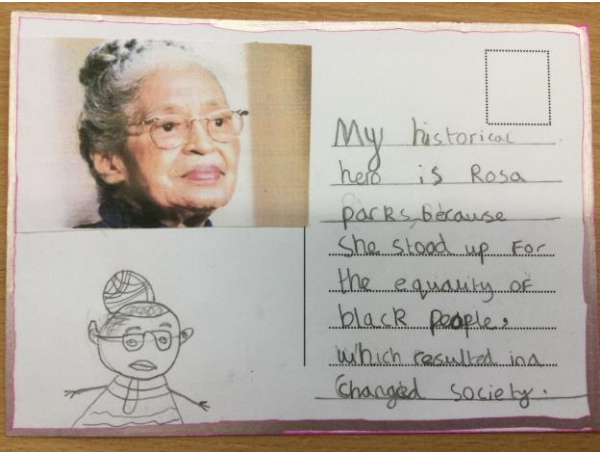 My historical
hero is Rosa
parks, because
She stood up For
the equality of
black people,
which resulted in a
Changed society.